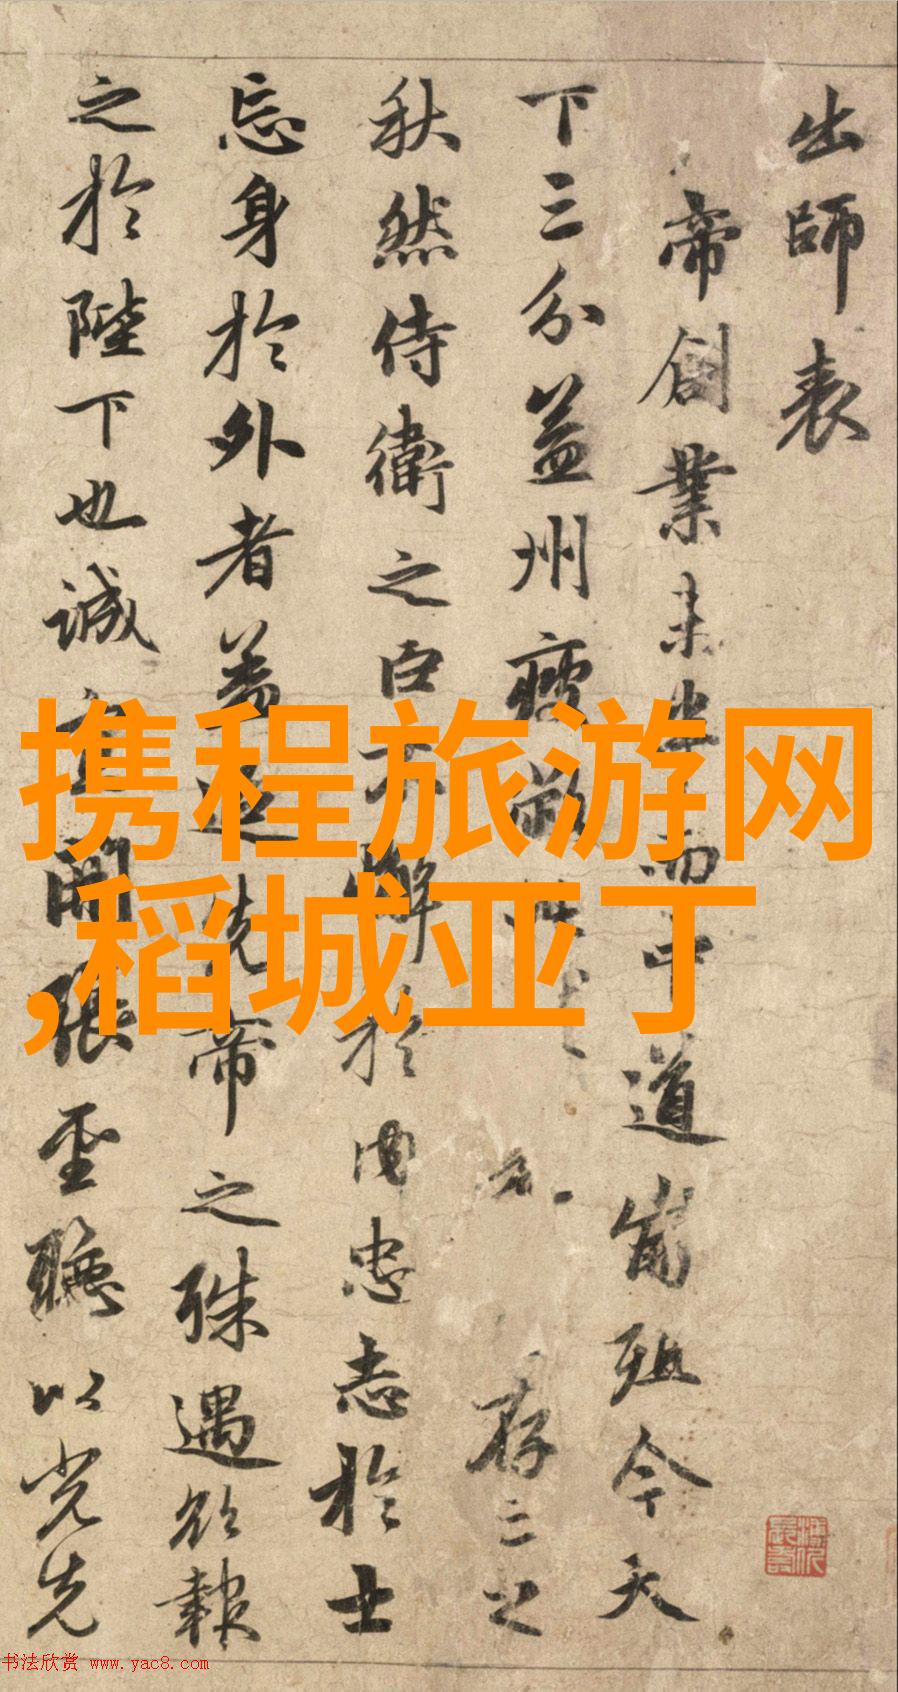 出師表
帝創業未半而中道崩殂今天
下三分益州疲敝存亡之
秋然侍衛之臣不懈於内忠志於士
忘身於外者蓋追先帝之殊遇欲報
之於陛下也誠宜開張聖聽以光先
携程旅游网
,稻城亚丁
书法欣赏 www.yac8.com